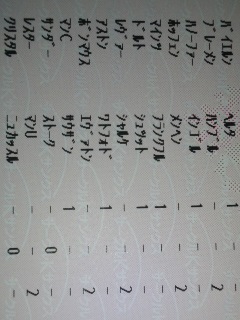 バイエルン ヘルタ 1 - -
ブレーメン ハンブル - - 2
ハノーファー インゴル 1 - -
ホッフェン メンヘン - - 2
マインツ フランクフル 1 - -
ドルト シュツット 1 - -
レヴァー シャルケ - - 2
アストン ワトフォド 1 - -
ボンマウス エバートン - - 2
マンC サウザン 1 - -
サンダー ストーク - 0 -
レスター マンU - - 2
クリスタル ニュカッスル - 0 -